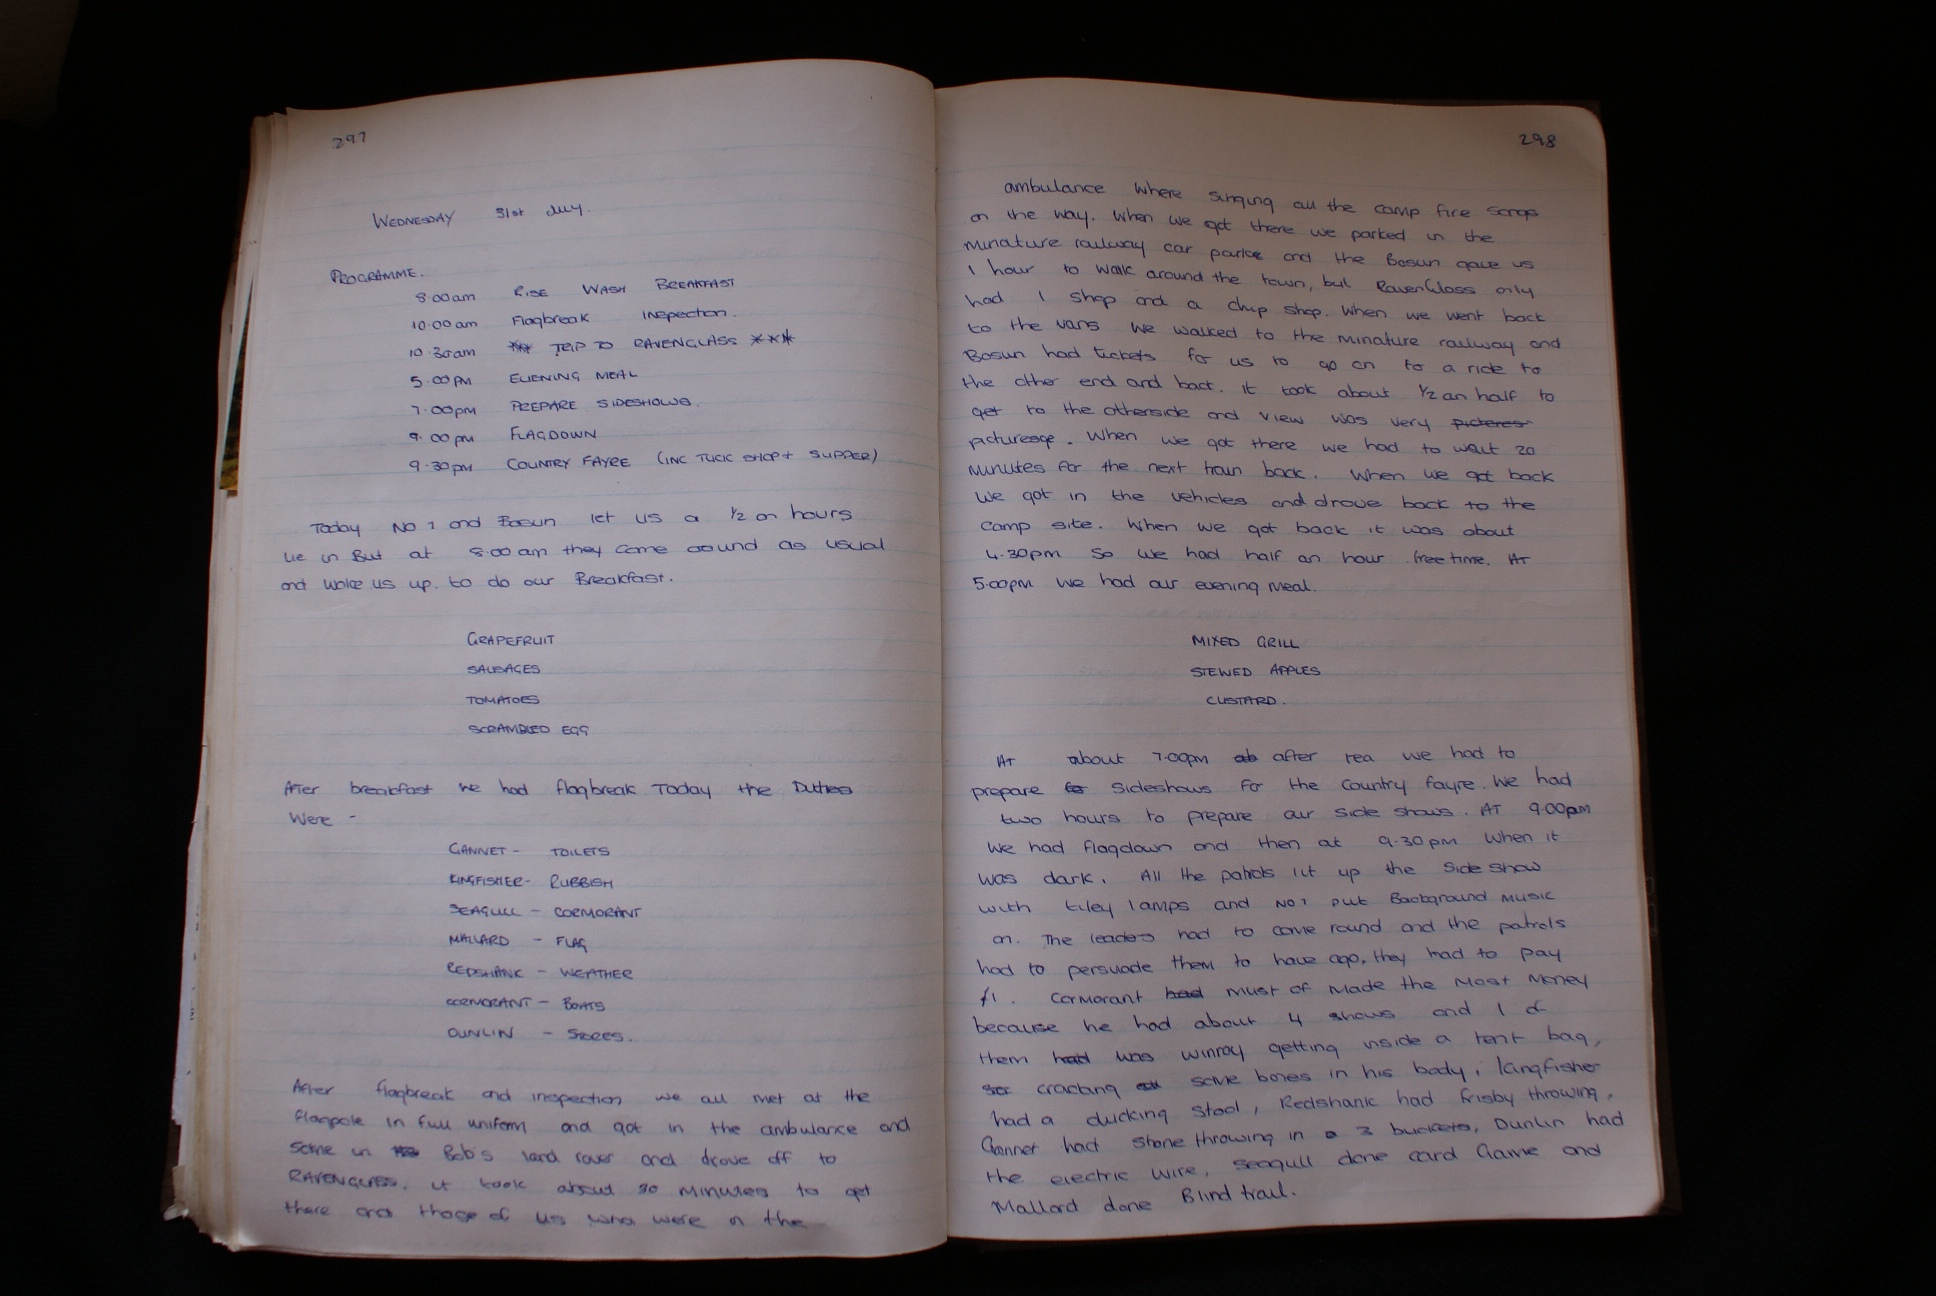 297
WEDNESDAY 31st July.
PROGRAMME.
8.00am RISE WASH BREAKFAST
10.00am Flagbreak Inspection.
10.30am *** TRIP TO RAVENGLASS ***
5.00PM EVENING MEAL
7.00pm PREPARE SIDESHOWS.
9.00pm FLAGDOWN
9.30pm COUNTRY FAYRE (INC TUCK SHOP + SUPPER)
Today No 1 and Bosun let us a 1/2 an hours
lie in But at 8.00 am they came around as usual
and woke us up. to do our Breakfast.
GRAPEFRUIT
SAUSAGES
TOMATOES
SCRAMBLED EGG
After breakfast we had flagbreak Today the Duties
Were -
GANNET - TOILETS
KINGFISHER - RUBBISH
SEAGULL - CORMORANT
MALLARD - FLAG
REDSHANK - WEATHER
CORMORANT - BOATS
DUNLIN - STORES.
After flagbreak and inspection we all met at the
flagpole in full uniform and got in the ambulance and
some in Bob's land rover and drove off to
RAVENGLASS. it took about 30 minutes to get
there and those of us who were in the
298
ambulance where singing all the camp fire songs
on the way. When we got there we parked in the
minature railway car parke and the Bosun gave us
1 hour to walk around the town, but RavenGlass only
had 1 shop and a chip shop. When we went back
to the vans we walked to the minature railway and
Bosun had tickets for us to go on to a ride to
the other end and back. it took about 1/2 an half to
get to the otherside and view was very picteres
picturesqe. When we got there we had to wait 20
minutes for the next train back. When we got back
we got in the vehicles and drove back to the
camp site. When we got back it was about
4.30pm So we had half an hour free time. At
5.00pm we had our evening meal.
MIXED GRILL
STEWED APPLES
CUSTARD.
At about 7.00pm after tea we had to
prepare to sideshows for the Country fayre. We had
two hours to prepare our side shows. At 9.00pm
we had flagdown and then at 9.30pm when it
was dark. All the patrols lit up the side show
with tiley lamps and No 1 put Background music
on. The leaders had to come round and the patrols
had to persuade them to have ago, they had to pay
£1. Cormorant had must of made the most money
because he had about 4 shows and 1 of
them had was winray getting inside a tent bag,
cracking some bones in his body, kingfisher
had a ducking stool, Redshank had frisby throwing,
Gannet had stone throwing in a 3 buckets, Dunlin had
the electric wire, seagull done card Game and
Mallard done Blind trail.